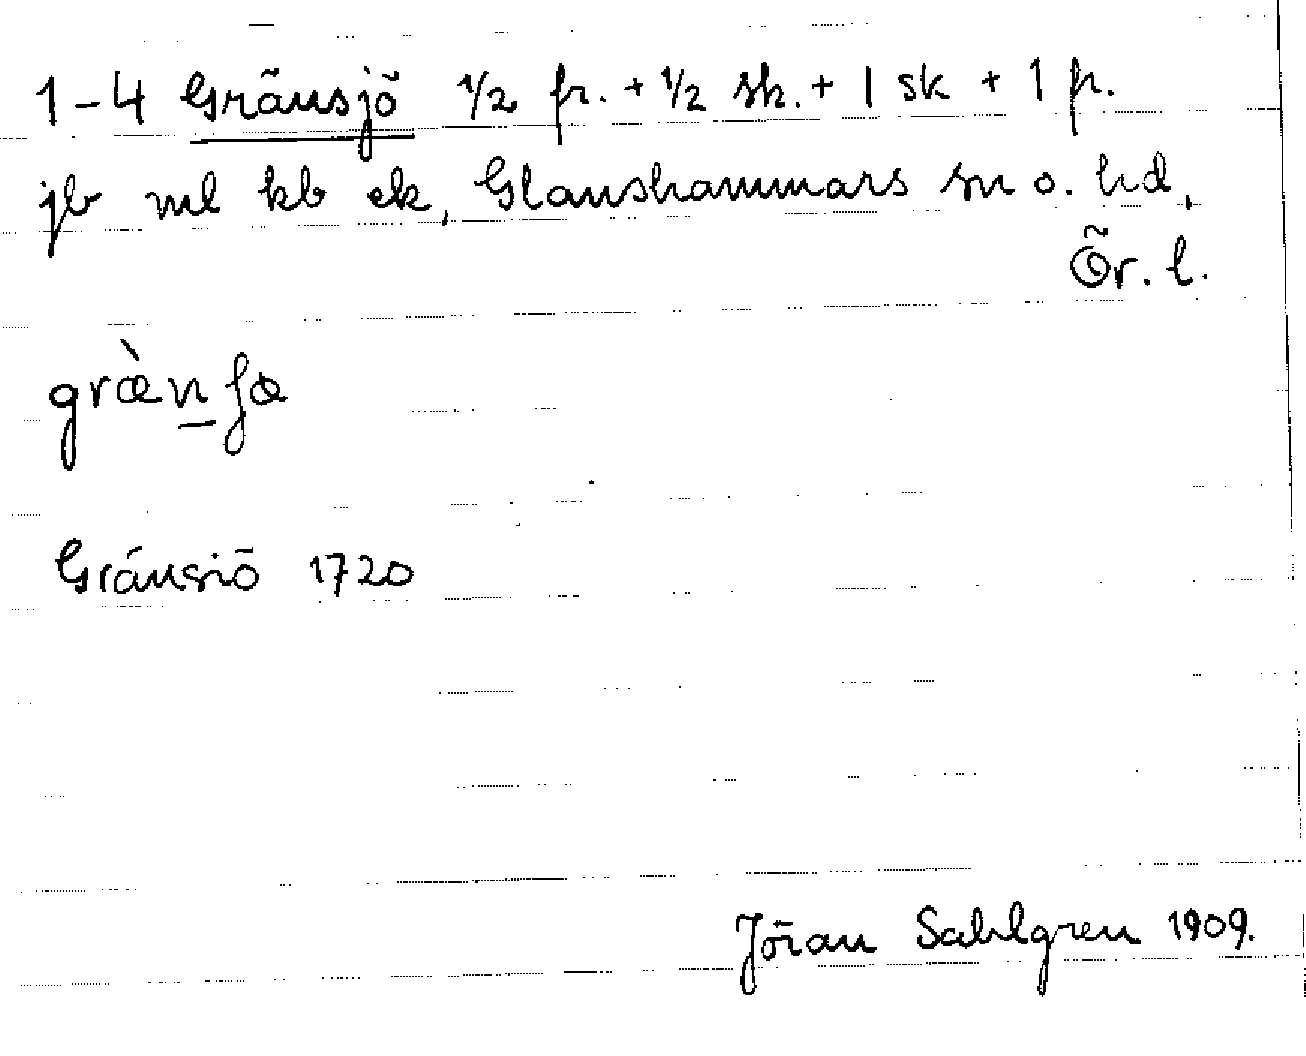 1-4 Gränsjö 1/2 fr. + 1/2 sk. + 1 sk + 1 fr.
jb ml kb ek, Glanshammars sn o. hd,
Ör. l.
græ̀n̲ʃø
Gránsiö 1720
Jöran Sahlgren 1909.